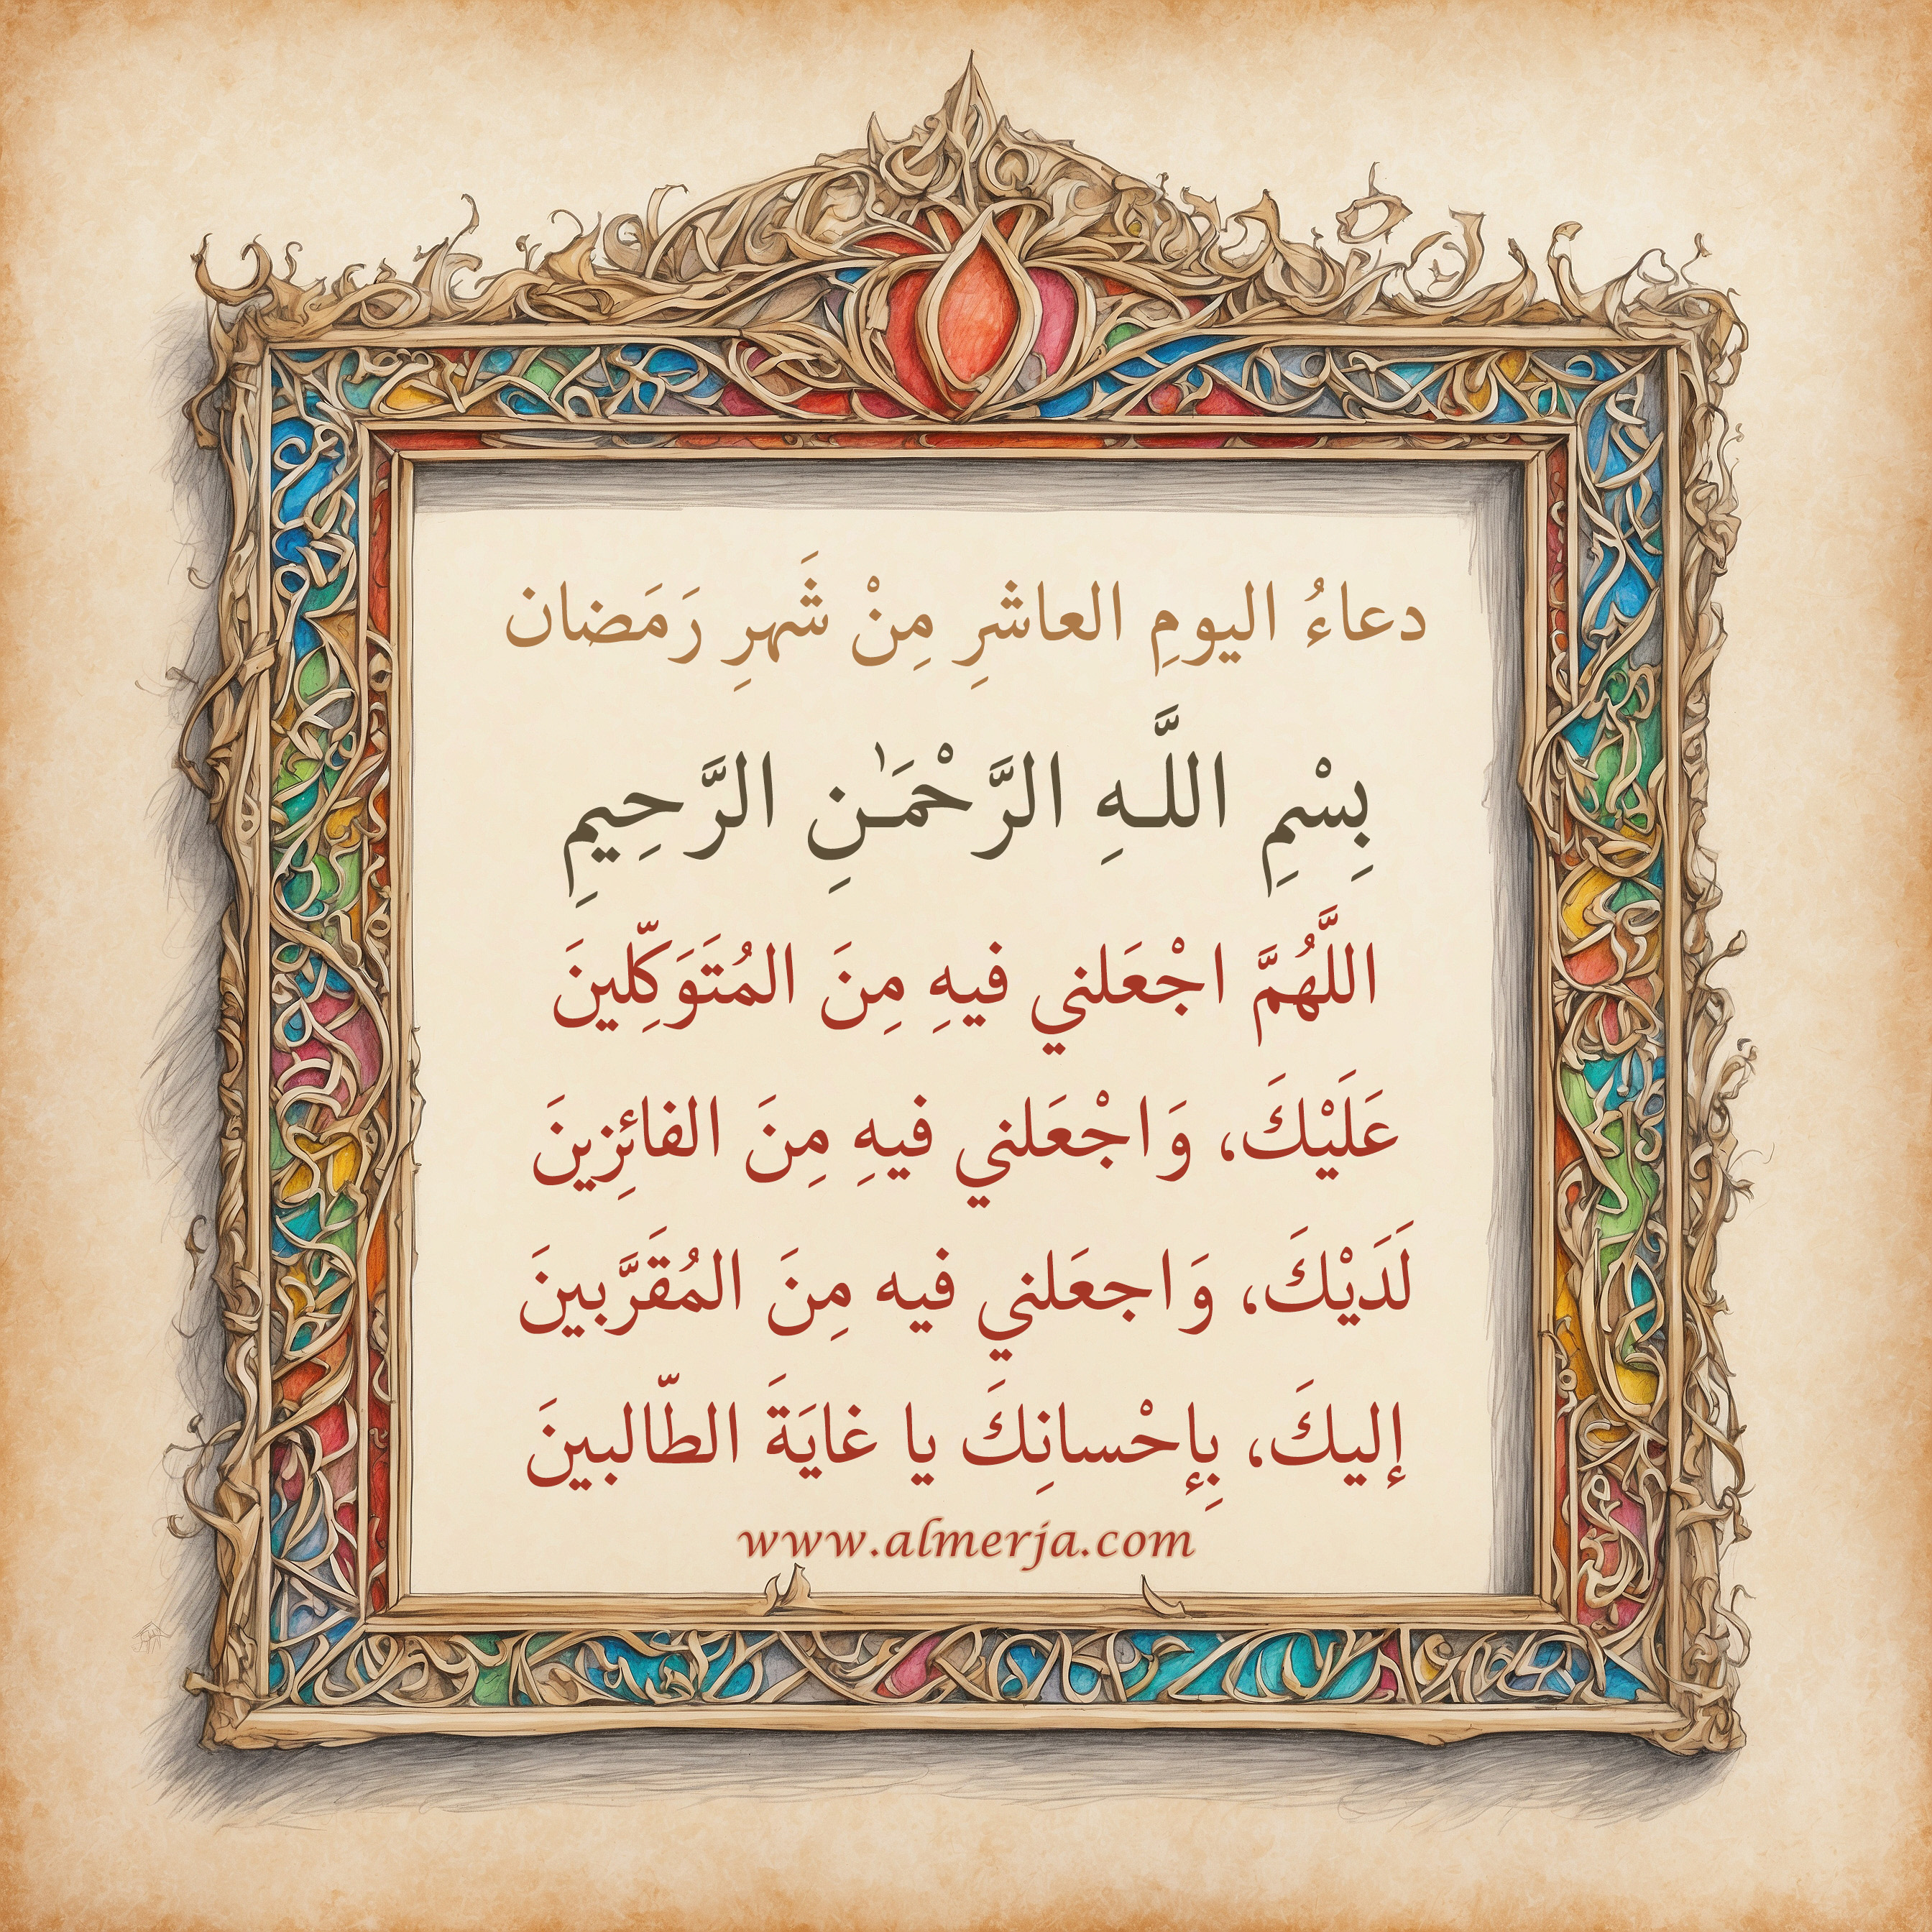 دعاءُ اليومِ العاشرِ مِنْ شَهرِ رَمَضان
بِسْمِ اللَّـهِ الرَّحْمَـٰنِ الرَّحِيمِ
اللَّهُمَّ اجْعَلني فيهِ مِنَ المُتَوَكِّلينَ
عَلَيْكَ، وَاجْعَلني فيهِ مِنَ الفائِزينَ
لَدَيْكَ، وَاجعَلني فيه مِنَ المُقَرَّبينَ
إليكَ، بِإحْسانِكَ يا غايَةَ الطّالبينَ
www.almerja.com